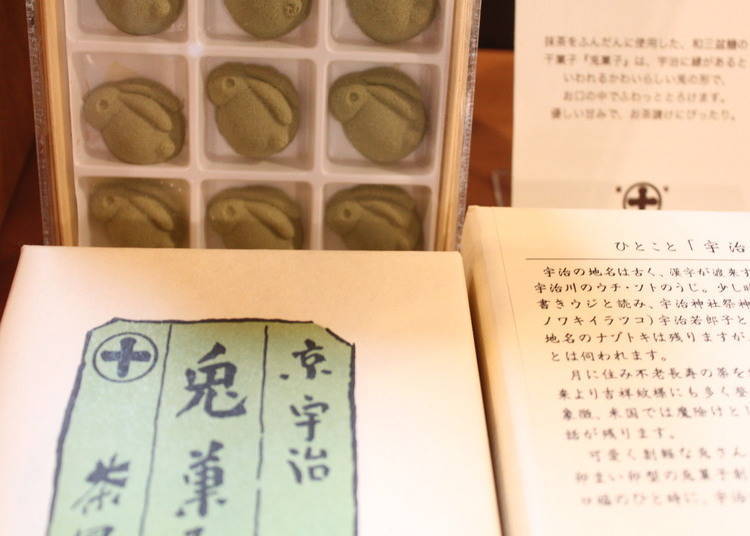 抹茶をふんだんに使用した、和三盆糖の
干菓子『兎菓子』は、宇治に縁があると
いわれるかわいらしい兎の形で、
お口の中でふわっととろけます。
優しい甘みで、お茶請けにぴったり。
ひとこと「宇治
宇治の地名は古く、漢字が渡来す
宇治川のウチ・ソトのうじ。少し
書きウジと読み、宇治神社祭神
ノワキイラツコ)宇治若郎子と
地名のナゾトキは残りますが、
とは伺われます。
月に住み不老長寿の茶を
来より吉祥紋様にも多く登
象徴、米国では魔除けと
話が残ります。
可愛く剽軽な兎さん
卵型の兎菓子
口福のひと時に、宇治
京宇治
兎菓
茶